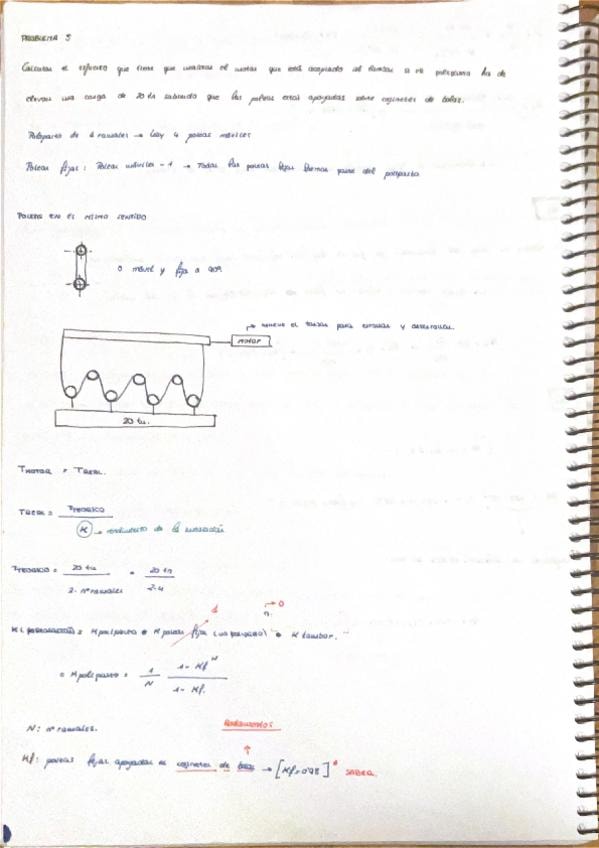 PROBLEMA 5
Calcular el esfuerzo que tiene que realizar el motor que está acoplado al tambor si mi polipasto ha de
elevar una carga de 20 tn sabiendo que las poleas están apoyadas sobre cojinetes de bolas.
Polipasto de 4 ramales → hay 4 poleas móviles
Poleas fijas: Poleas móviles - 1 → Todas las poleas fijas forman parte del polipasto
POLEAS EN EL MISMO SENTIDO
o móvil y fija a 90º.
→ mueve el tambor para enrollar y desenrollar.
MOTOR
20 tn.
TMOTOR = TREAL.
TREAL = TTEORICO
K → rendimiento de la instalación
TTEORICO = 20 tn = 20 tn
2. nº ramales 2.4
1 → 0
K = Kpolipasto • Kpoleas fijas (no polipasto) • Ktambor.
= Kpolipasto = 1 1 - Kf^N
N 1 - Kf.
N: nº ramales.
Kf: poleas fijas apoyadas en cojinetes de bolas → [Kf = 0'98] * SABER.